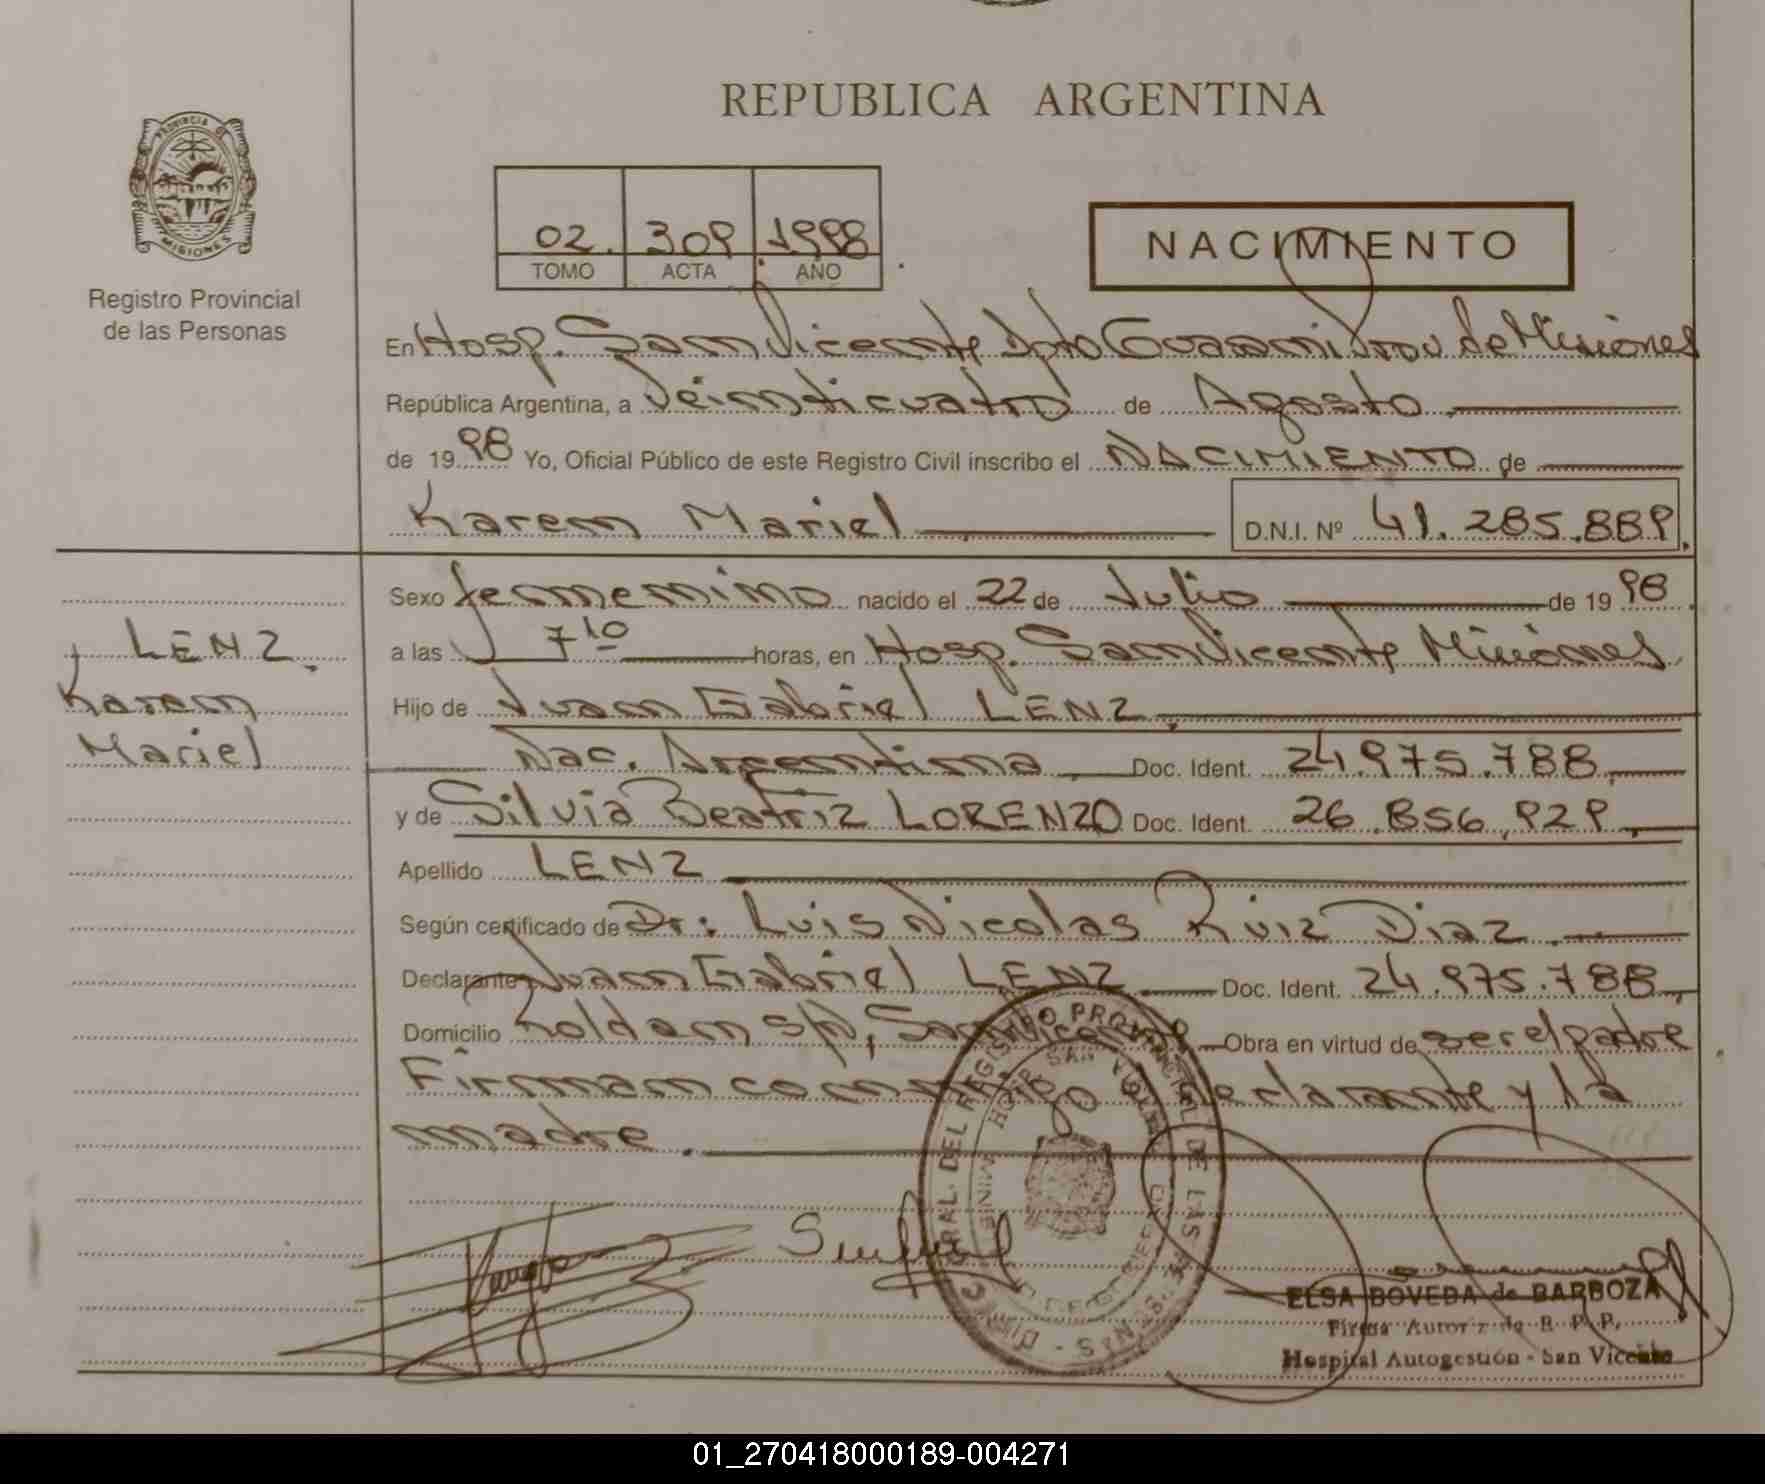 REPUBLICA ARGENTINA
PROVINCIA DE
MISIONES
Registro Provincial
de las Personas
02. 309 1998
TOMO ACTA AÑO
NACIMIENTO
En Hosp. San Vicente Dpto Guarani Prov de Misiones
República Argentina, a Veinticuatro de Agosto
de 1998 Yo, Oficial Público de este Registro Civil inscribo el NACIMIENTO de
Karen Mariel D.N.I. Nº 41.285.889.
Sexo femenino nacido el 22 de Julio de 1998
a las 7 10 horas, en Hosp. San Vicente Misiones
Hijo de Juan Gabriel LENZ
Nac. Argentina Doc. Ident. 24.975.788
y de Silvia Beatriz LORENZO Doc. Ident. 26.856.929
Apellido LENZ
Según certificado de Dr: Luis Nicolas Ruiz Diaz
Declarante Juan Gabriel LENZ Doc. Ident. 24.975.788
Domicilio Roldan s/n, San Vicente Obra en virtud de ser el padre
Firman conmigo declarante y la
madre.
LENZ
Karen
Mariel
ELSA BOVEDA de BARBOZA
Firma Autoriz. de R. P. P.
Hospital Autogestión - San Vicente
01_270418000189-004271